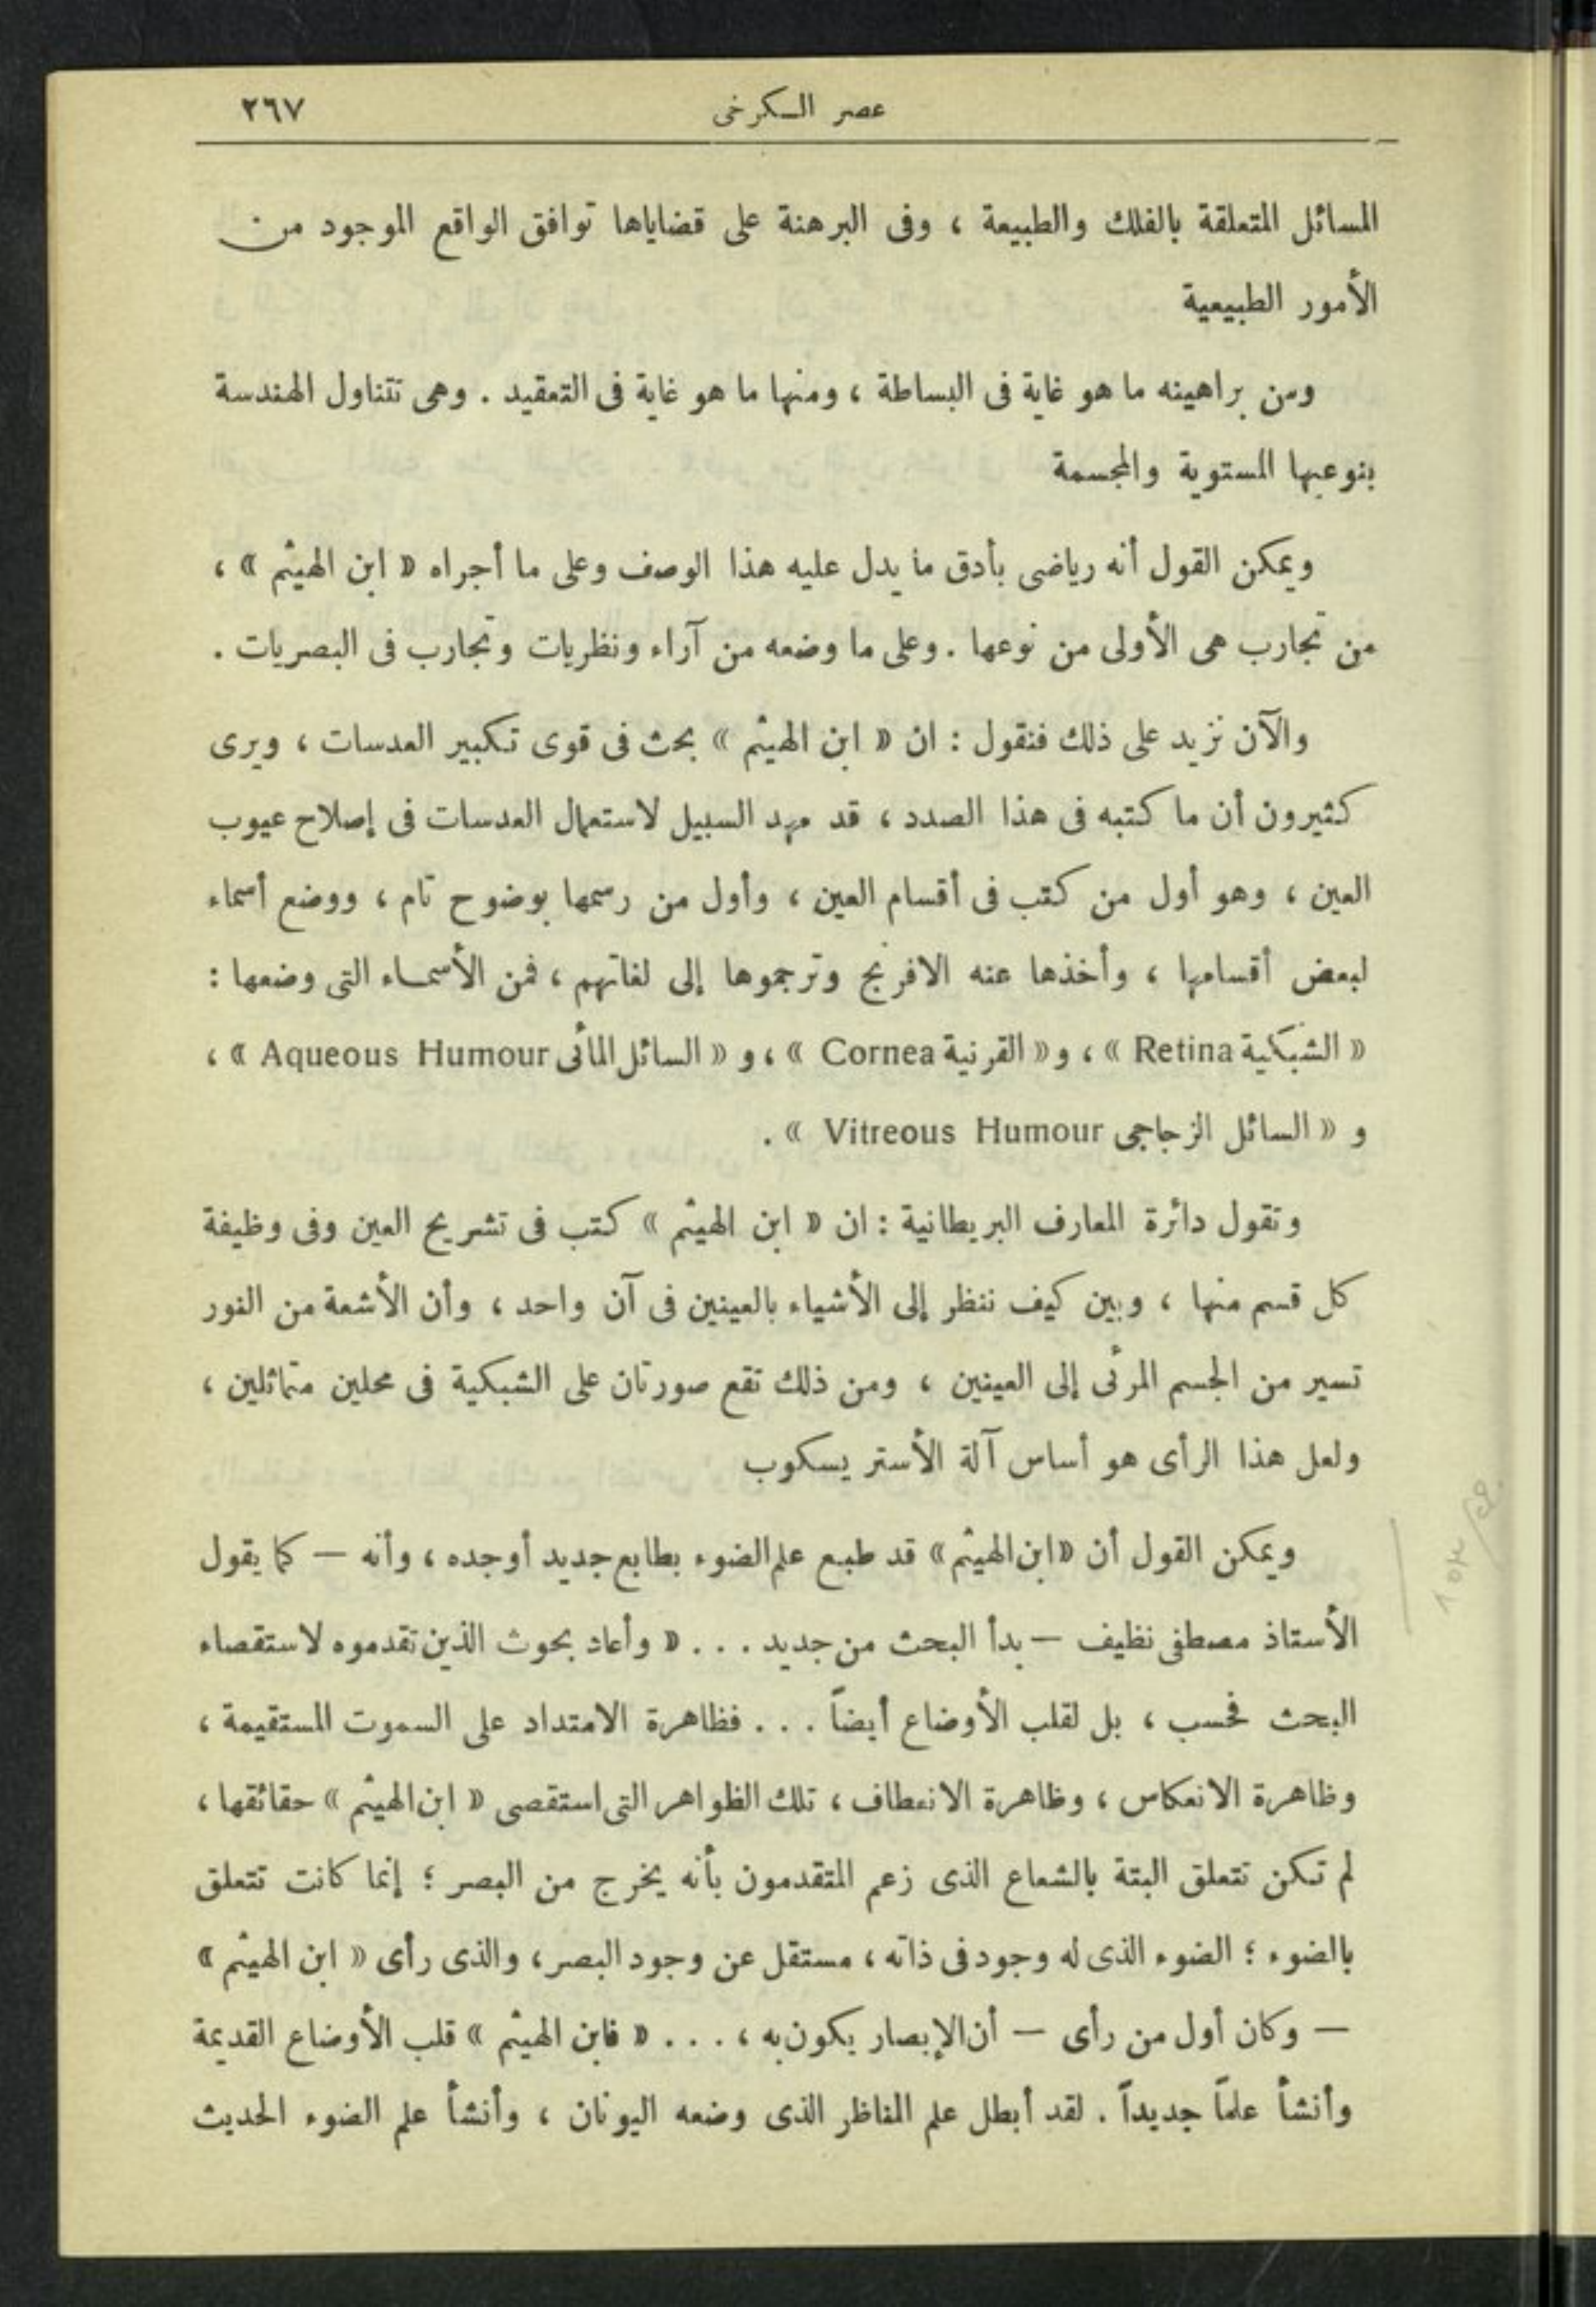 عصر الكرخى ٢٦٧
المسائل المتعلقة بالفلك والطبيعة ، وفى البرهنة على قضاياها توافق الواقع الموجود من
الأمور الطبيعية
ومن براهينه ما هو غاية فى البساطة ، ومنها ما هو غاية فى التعقيد . وهى تتناول الهندسة
بنوعيها المستوية والمجسمة
ويمكن القول أنه رياضى بأدق ما يدل عليه هذا الوصف وعلى ما أجراه « ابن الهيثم » ،
من تجارب هى الأولى من نوعها . وعلى ما وضعه من آراء ونظريات وتجارب فى البصريات .
والآن نزيد على ذلك فنقول : ان « ابن الهيثم » بحث فى قوى تكبير العدسات ، ويرى
كثيرون أن ما كتبه فى هذا الصدد ، قد مهد السبيل لاستعمال العدسات فى إصلاح عيوب
العين ، وهو أول من كتب فى أقسام العين ، وأول من رسمها بوضوح تام ، ووضع أسماء
لبعض أقسامها ، وأخذها عنه الافرنج وترجموها إلى لغاتهم ، فمن الأسماء التى وضعها :
« الشبكية Retina » ، و « القرنية Cornea » ، و « السائل المائى Aqueous Humour » ،
و « السائل الزجاجى Vitreous Humour » .
وتقول دائرة المعارف البريطانية : ان « ابن الهيثم » كتب فى تشريح العين وفى وظيفة
كل قسم منها ، وبين كيف ننظر إلى الأشياء بالعينين فى آن واحد ، وأن الأشعة من النور
تسير من الجسم المرئى إلى العينين ، ومن ذلك تقع صورتان على الشبكية فى محلين متماثلين ،
ولعل هذا الرأى هو أساس آلة الأستريسكوب
ويمكن القول أن « ابن الهيثم » قد طبع علم الضوء بطابع جديد أوجده ، وأنه — كما يقول
الأستاذ مصطفى نظيف — بدأ البحث من جديد . . . « وأعاد بحوث الذين تقدموه لا ستقصاء
البحث فحسب ، بل لقلب الأوضاع أيضاً . . . فظاهرة الامتداد على السموت المستقيمة ،
وظاهرة الانعكاس ، وظاهرة الانعطاف ، تلك الظواهر التى استقصى « ابن الهيثم » حقائقها ،
لم تكن تتعلق البتة بالشعاع الذى زعم المتقدمون بأنه يخرج من البصر ؛ إنما كانت تتعلق
بالضوء ؛ الضوء الذى له وجود فى ذاته ، مستقل عن وجود البصر ، والذى رأى « ابن الهيثم »
— وكان أول من رأى — أن الإبصار يكون به ، . . . « فابن الهيثم » قلب الأوضاع القديمة
وأنشأ علماً جديداً . لقد أبطل علم المناظر الذى وضعه اليونان ، وأنشأ علم الضوء الحديث